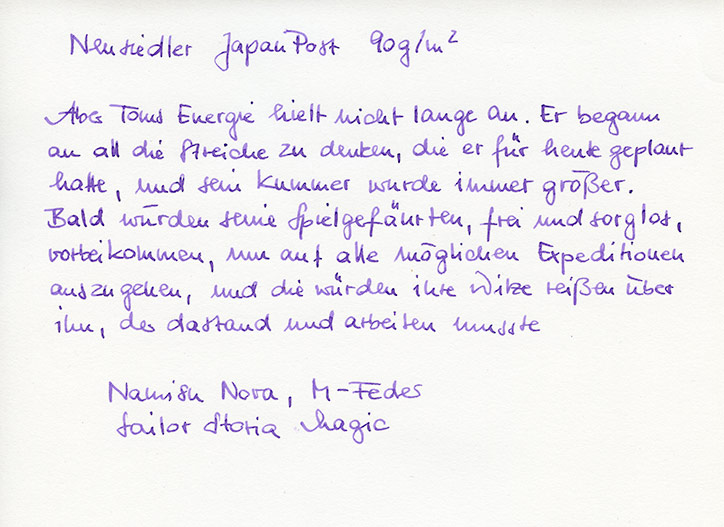 Neusiedler JapanPost 90g/m²
Aber Toms Energie hielt nicht lange an. Er begann
an all die Streiche zu denken, die er für heute geplant
hatte, und sein Kummer wurde immer größer.
Bald würden seine Spielgefährten, frei und sorglos,
vorbeikommen, um auf alle möglichen Expeditionen
auszugehen, und die würden ihre Witze reißen über
ihn, der dastand und arbeiten musste
Namisu Nova, M-Feder
Sailor Storia Magic